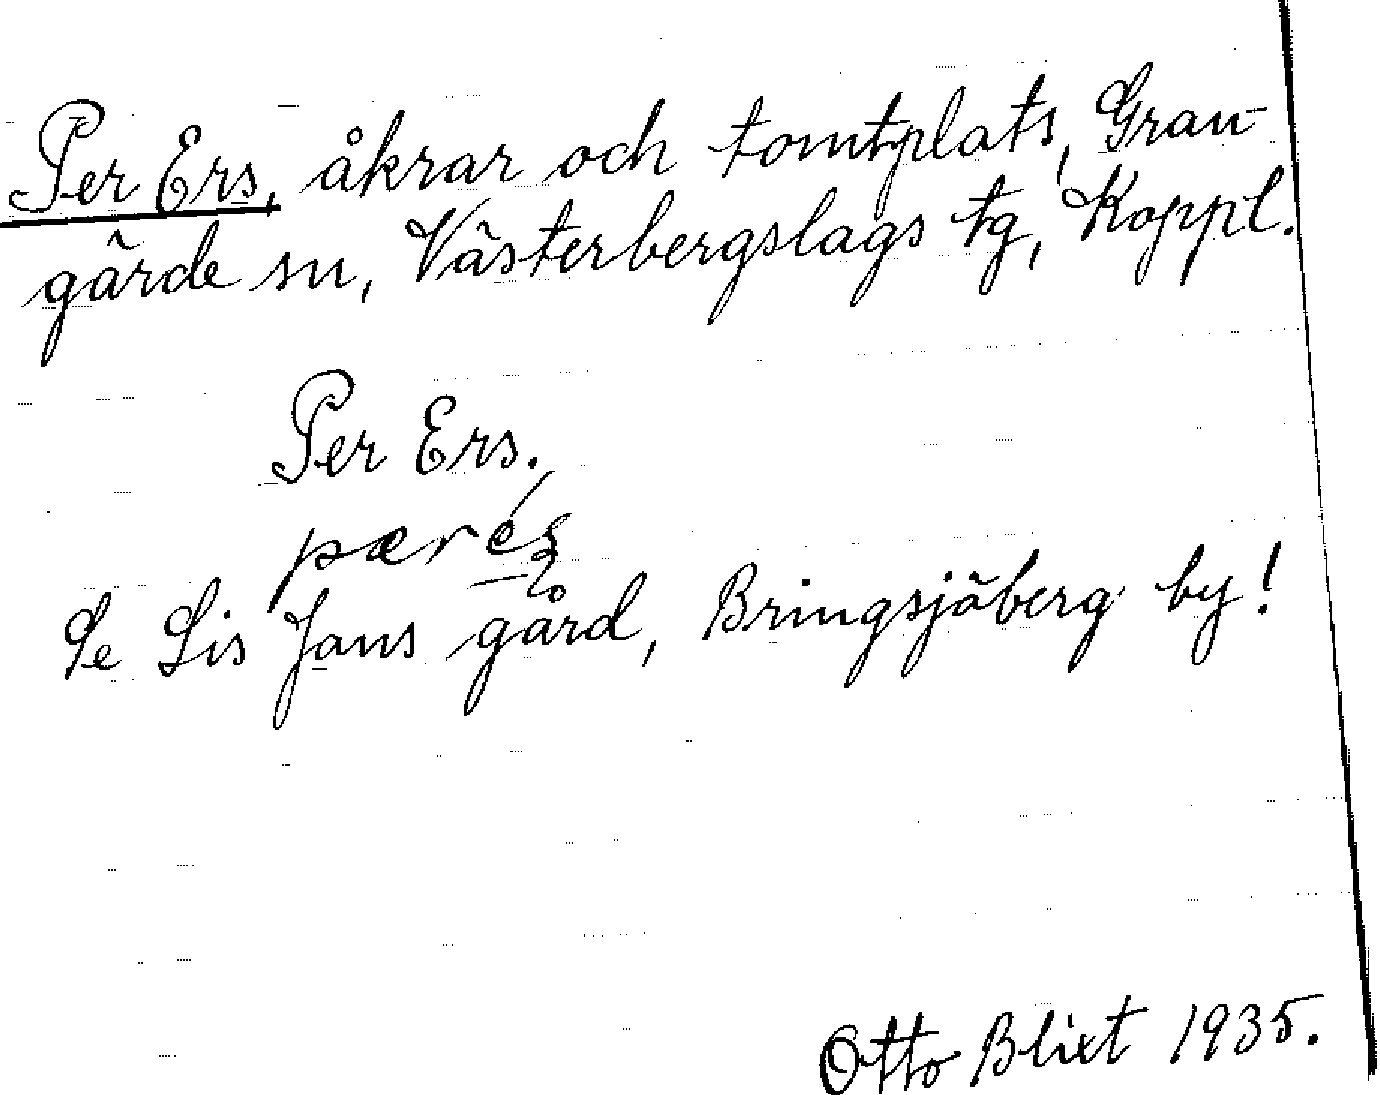 Per Ers, åkrar och tomtplats, Gran-
gärde sn, Västerbergslags tg, Koppl.
Per Ers.
Se Lis Jans gård, Bringsjöberg by!
Otto Blixt 1935.